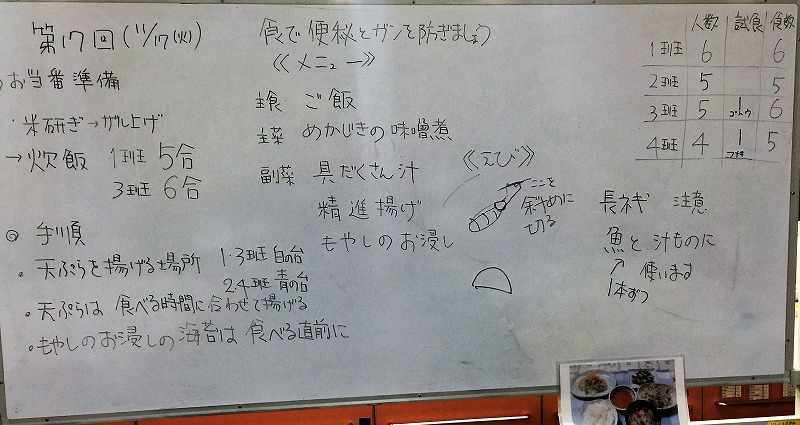 第17回(11/17(火))
お当番準備
・米研ぎ→ザル上げ
→炊飯 1班 5合
3班 6合
◎ 手順
・天ぷらを揚げる場所 1・3班 白の台
2,4班 青の台
・天ぷらは 食べる時間に合わせて揚げる
・もやしのお浸しの海苔は 食べる直前に
食で便秘とガンを防ぎましょう
《メニュー》
主食 ご飯
主菜 めかじきの味噌煮
副菜 具だくさん汁
精進揚げ
もやしのお浸し
《えび》
ここを
斜めに
切る
人数 試食 食数
1班 6 6
2班 5 5
3班 5 1 6
4班 4 1 5
長ネギ 注意
魚と 汁ものに
↑ 使います
1本ずつ